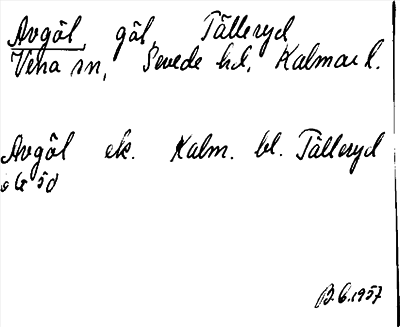 Avgöl, göl, Tälleryd
Vena sn, Sevede hd, Kalmar l.
Avgöl ek. Kalm. bl. Tälleryd
5d
B.G.1957